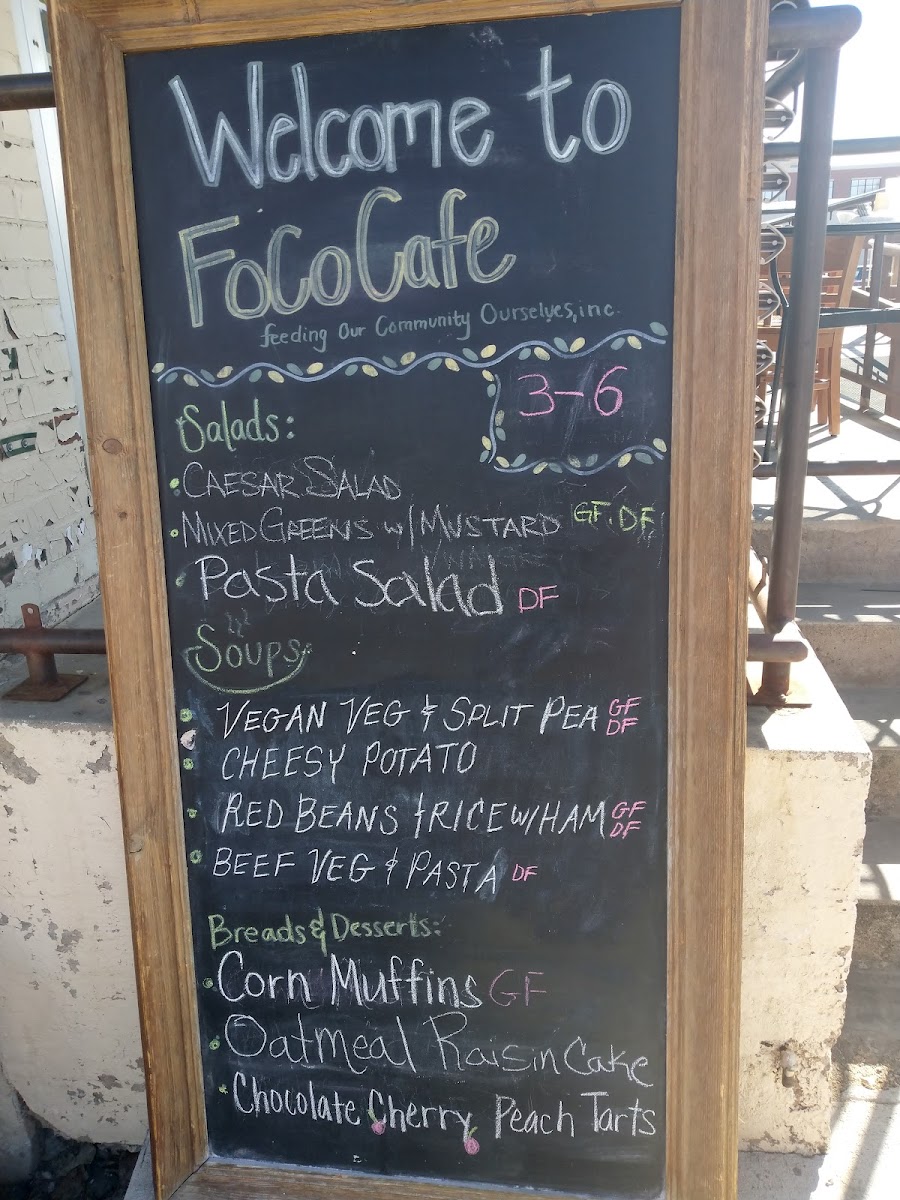 Welcome to
FoCo Cafe
feeding Our Community Ourselves, inc.
3-6
Salads:
CAESAR SALAD
MIXED GREENS W/ MUSTARD GF, DF
Pasta Salad DF
Soups
VEGAN VEG & SPLIT PEA GF DF
CHEESY POTATO
RED BEANS & RICE W/HAM GF DF
BEEF VEG & PASTA DF
Breads & Desserts:
Corn Muffins GF
Oatmeal Raisin Cake
Chocolate Cherry Peach Tarts